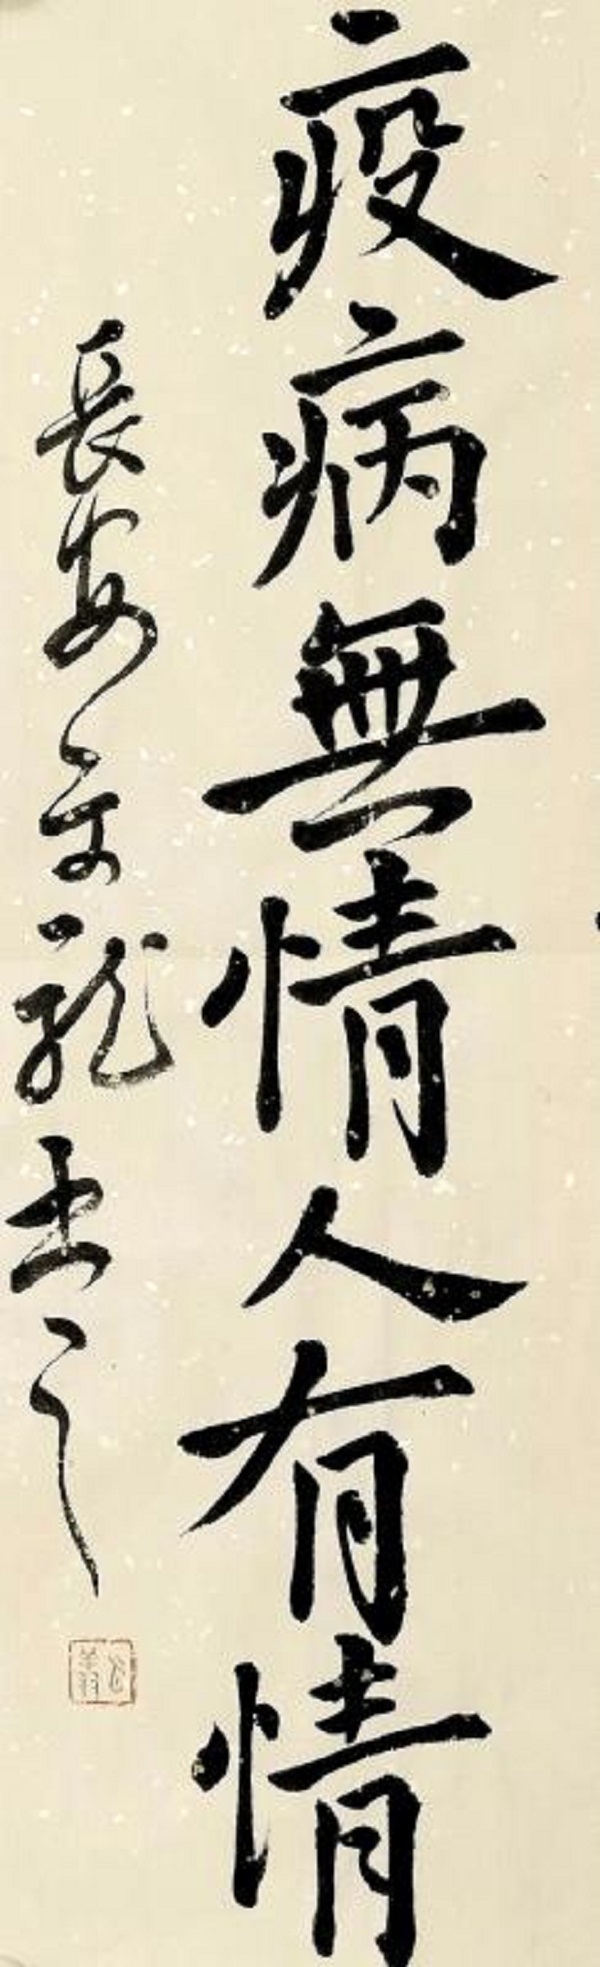 疫病無情人有情
長安文龍書之